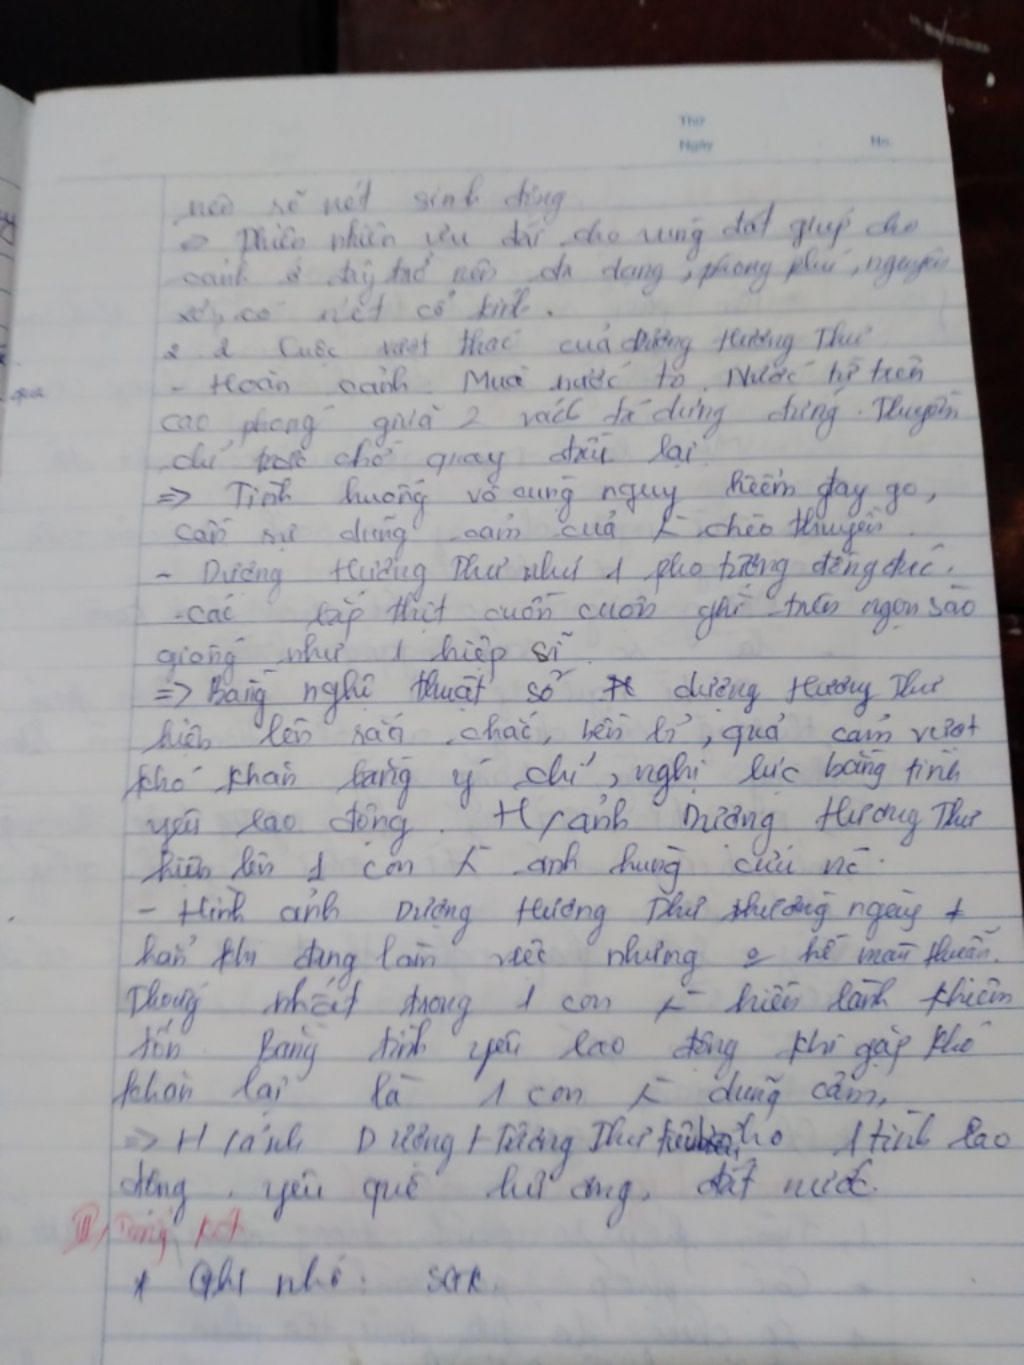 Thứ
Ngày
No.
nên rõ nét sinh động
=> Thiên nhiên ưu đãi cho vùng đất giúp cho
cảnh ở đây trở nên đa dạng, phong phú, nguyên
sơ, có nét cổ kính.
2 Cuộc vượt thác của Dượng Hương Thư
- Hoàn cảnh Mùa nước to. Nước từ trên
cao phóng giữa 2 vách đá dựng đứng. Thuyền
chỉ chỗ quay đầu lại
=> Tình huống vô cùng nguy hiểm gay go,
cần sự dũng cảm của chèo thuyền.
- Dượng Hương Thư như 1 pho tượng đồng đúc.
- các bắp thịt cuồn cuộn ghì trên ngọn sào
giống như 1 hiệp sĩ.
=> Bằng nghệ thuật so dượng Hương Thư
hiện lên rắn chắc, bền bỉ, quả cảm vượt
khó khăn bằng ý chí, nghị lực bằng tình
yêu lao động. H/ảnh Dượng Hương Thư
hiện lên 1 con anh hùng cứu
- Hình ảnh Dượng Hương Thư thường ngày
hẳn khi đang làm việc nhưng hề mâu thuẫn.
Thống nhất trong 1 con hiền lành khiêm
tốn Bằng tình yêu lao động khi gặp khó
khăn lại là 1 con dũng cảm.
=> H/ảnh Dượng Hương Thư 1 tình lao
động, yêu quê hương, đất nước.
III, Tổng kết
* Ghi nhớ: SGK.